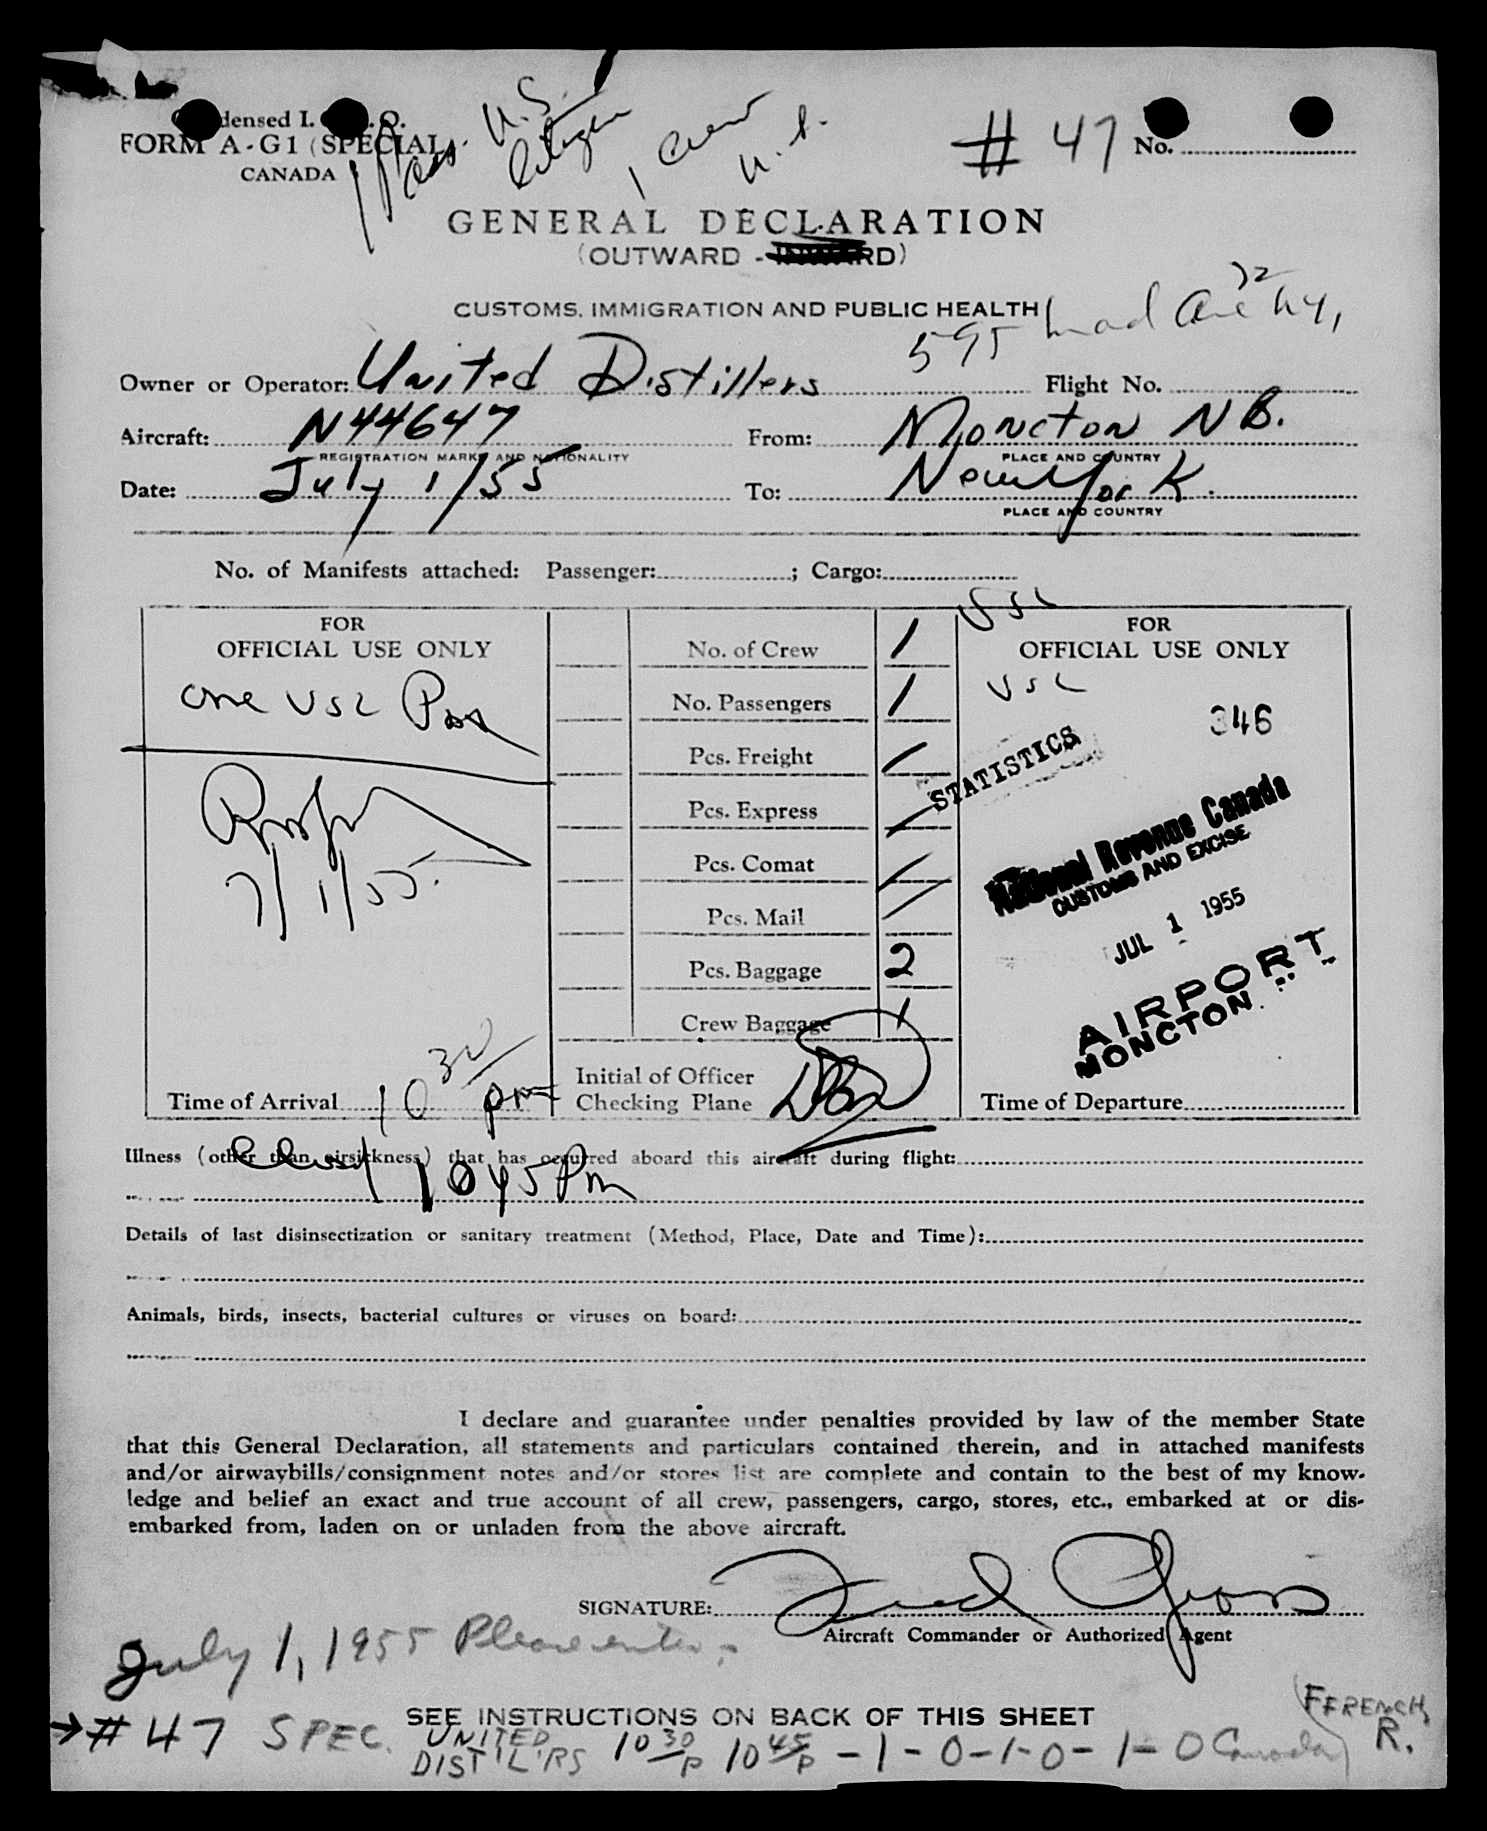 Condensed I. .O.
FORM A-G1 (SPECIAL)
CANADA
1 Pass. U.S. Citizen
1 Crew U.S.
# 47 No.
GENERAL DECLARATION
(OUTWARD - INWARD)
CUSTOMS, IMMIGRATION AND PUBLIC HEALTH
595 Mad Ave N.Y. 22
Owner or Operator: United Distillers Flight No.
Aircraft: N44647 From: Moncton NB.
REGISTRATION MARKS AND NATIONALITY PLACE AND COUNTRY
Date: July 1/55 To: New York.
PLACE AND COUNTRY
No. of Manifests attached: Passenger: ; Cargo:
FOR
OFFICIAL USE ONLY
one USC Pax
7/1/55.
Time of Arrival 10 30 pm
Closed 1045 Pm
No. of Crew 1
No. Passengers 1
Pcs. Freight /
Pcs. Express /
Pcs. Comat /
Pcs. Mail /
Pcs. Baggage 2
Crew Baggage 1
Initial of Officer
Checking Plane
USC
FOR
OFFICIAL USE ONLY
USC
346
STATISTICS
National Revenue Canada
CUSTOMS AND EXCISE
JUL 1 1955
AIRPORT
MONCTON
Time of Departure
Illness (other than airsickness) that has occurred aboard this aircraft during flight:
Details of last disinsectization or sanitary treatment (Method, Place, Date and Time):
Animals, birds, insects, bacterial cultures or viruses on board:
I declare and guarantee under penalties provided by law of the member State
that this General Declaration, all statements and particulars contained therein, and in attached manifests
and/or airwaybills/consignment notes and/or stores list are complete and contain to the best of my know-
ledge and belief an exact and true account of all crew, passengers, cargo, stores, etc., embarked at or dis-
embarked from, laden on or unladen from the above aircraft.
SIGNATURE:
Aircraft Commander or Authorized Agent
July 1, 1955 Please enter.
SEE INSTRUCTIONS ON BACK OF THIS SHEET
→ # 47 SPEC. UNITED DIST'L'RS 10 30 P 10 45 P - 1 - 0 - 1 - 0 - 1 - 0 Canada
FFRENCH, R.